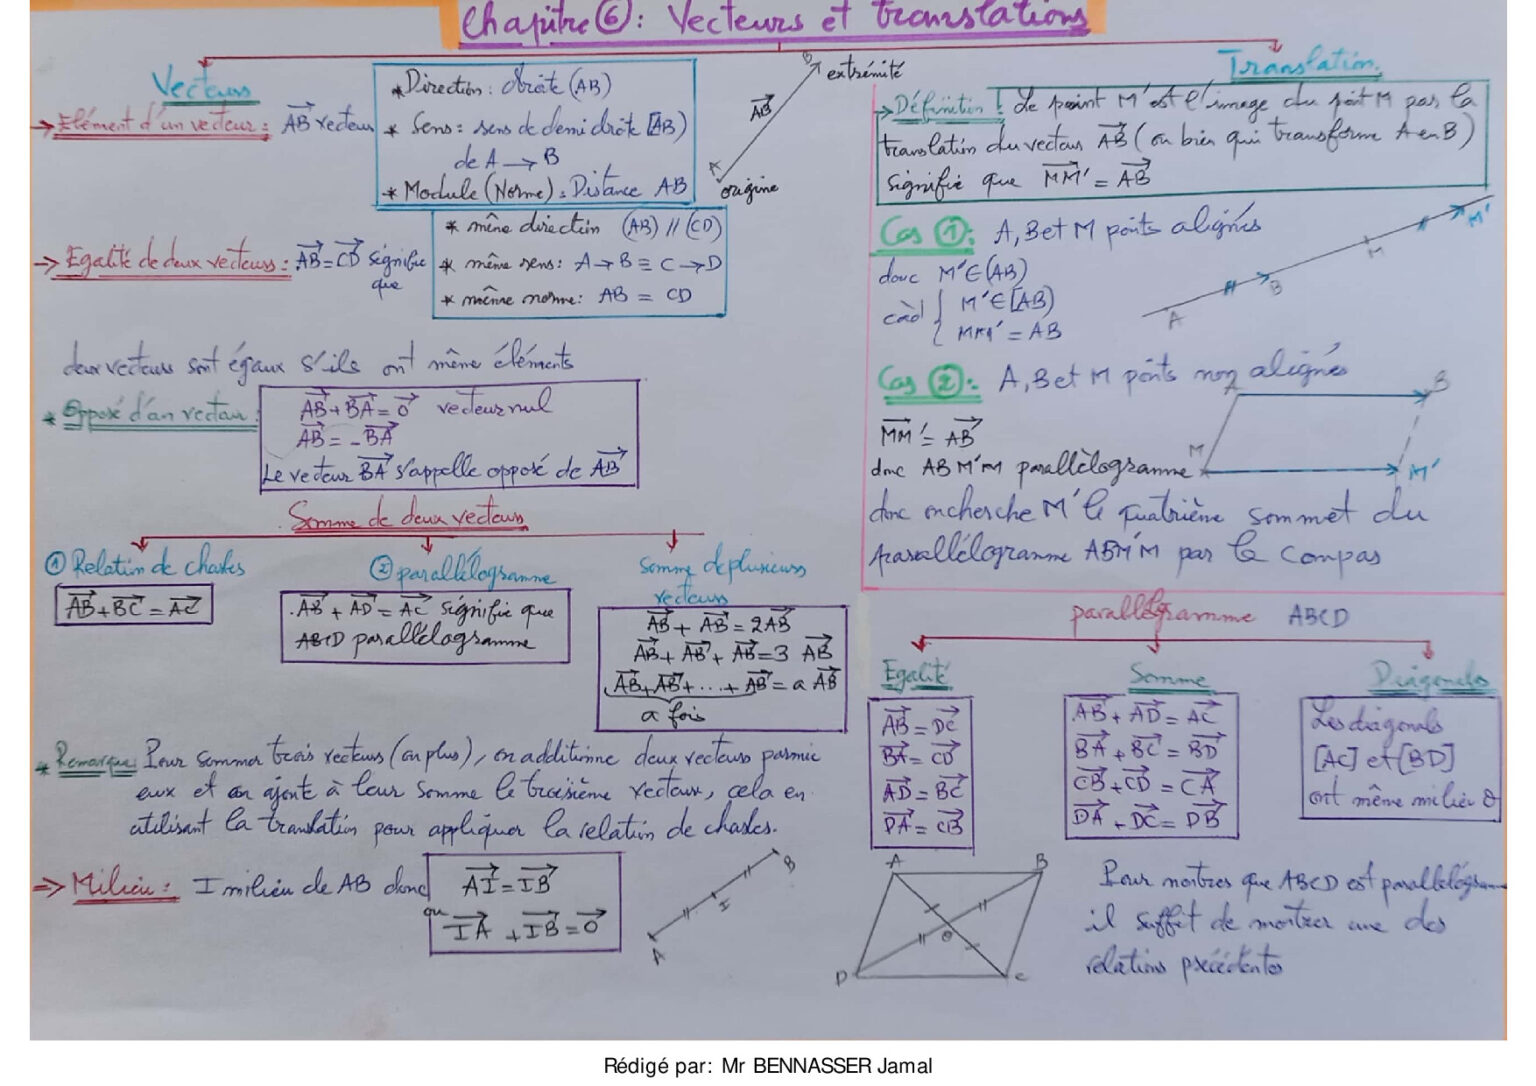 Chapitre ⑥ : Vecteurs et translations
Vecteurs
→ Elément d'un vecteur : AB vecteur
* Direction : droite (AB)
* Sens : sens de demi droite [AB)
de A → B
* Module (Norme) : Distance AB
B extrémité
AB
A
origine
→ Egalité de deux vecteurs : AB = CD signifie que
* même direction (AB) // (CD)
* même sens : A → B ≡ C → D
* même norme : AB = CD
deux vecteurs sont égaux s'ils ont même éléments
* Opposé d'un vecteur :
AB + BA = 0 vecteur nul
AB = - BA
Le vecteur BA s'appelle opposé de AB
Somme de deux vecteurs
① Relation de chasles
AB + BC = AC
② parallélogramme
AB + AD = AC signifie que
ABCD parallélogramme
Somme de plusieurs
vecteurs
AB + AB = 2AB
AB + AB + AB = 3 AB
AB + AB + ... + AB = a AB
a fois
* Remarque : Pour sommer trois vecteurs (ou plus), on additionne deux vecteurs parmie
eux et on ajoute à leur somme le troisième vecteur, cela en
utilisant la translation pour appliquer la relation de chasles.
⇒ Milieu : I milieu de AB donc
AI = IB
ou
IA + IB = 0
A I B
Translation
→ Définition : Le point M' est l'image du point M par la
translation du vecteur AB (ou bien qui transforme A en B)
signifie que MM' = AB
Cas ① : A, B et M points alignés
donc M' ∈ (AB)
càd { M' ∈ [AB)
MM' = AB
A B M M'
Cas ② : A, B et M points non alignés
MM' = AB
donc ABM'M parallèlogramme
A B
M M'
donc on cherche M' le quatrième sommet du
parallélogramme ABM'M par le compas
parallélogramme ABCD
Egalité
AB = DC
BA = CD
AD = BC
DA = CB
Somme
AB + AD = AC
BA + BC = BD
CB + CD = CA
DA + DC = DB
Diagonales
Les diagonals
[AC] et [BD]
ont même milieu O
A B
O
D C
Pour montrer que ABCD est parallélogramme
il suffit de montrer une des
relations précédentes
Rédigé par: Mr BENNASSER Jamal